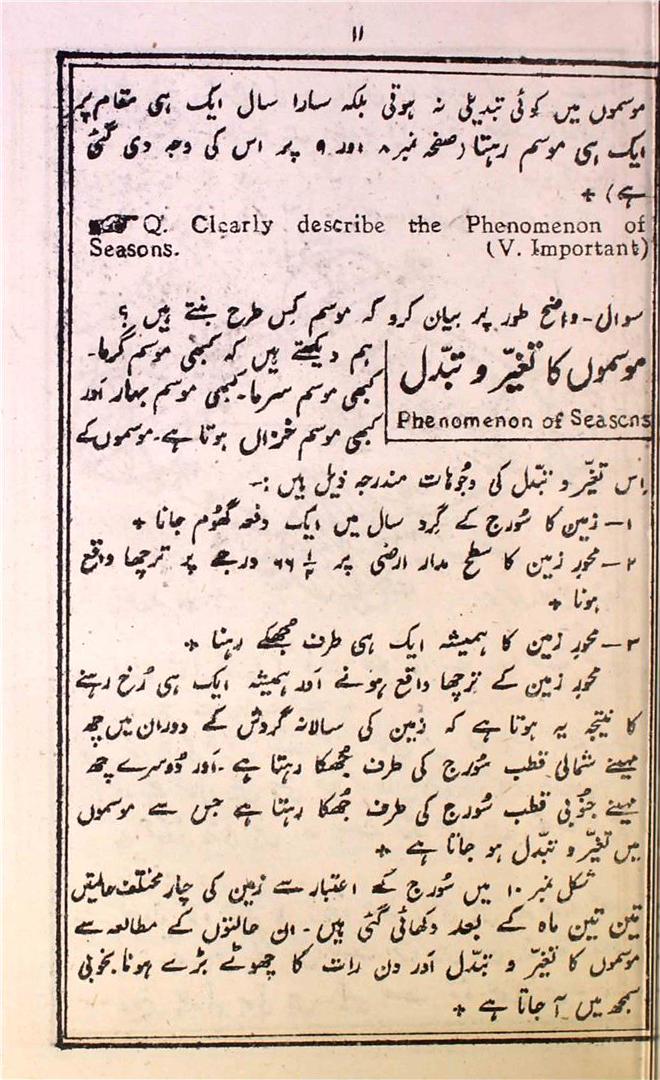 ۱۱
موسموں میں کوئی تبدیلی نہ ہوتی بلکہ سارا سال ایک ہی مقام پر
ایک ہی موسم رہتا (صفحہ نمبر ۸ اور ۹ پر اس کی وجہ دی گئی
ہے) +
Q. Clearly describe the Phenomenon of
Seasons. (V. Important)
سوال۔ واضح طور پر بیان کرو کہ موسم کِس طرح بنتے ہیں ؟
موسموں کا تغیّر و تبدّل
Phenomenon of Seasons
ہم دیکھتے ہیں کہ کبھی موسم گرما۔
کبھی موسم سرما۔ کبھی موسم بہار اَور
کبھی موسم خزاں ہوتا ہے۔ موسموں کے
اِس تغیّر و تبدّل کی وجُوہات مندرجہ ذیل ہیں :۔
۱۔ زمین کا سُورج کے گِرد سال میں ایک دفعہ گھُوم جانا +
۲۔ محورِ زمین کا سطح مدار ارضی پر ۶۶ ۱/۲ درجے پر ترچھا واقع
ہونا +
۳۔ محورِ زمین کا ہمیشہ ایک ہی طرف جُھکے رہنا +
محورِ زمین کے ترچھا واقع ہونے اَور ہمیشہ ایک ہی رُخ رہنے
کا نتیجہ یہ ہوتا ہے کہ زمین کی سالانہ گردش کے دوران میں چھ
مہینے شمالی قطب سُورج کی طرف جُھکا رہتا ہے۔ اَور دُوسرے چھ
مہینے جنُوبی قطب سُورج کی طرف جُھکا رہتا ہے جس سے موسموں
میں تغیّر و تبدّل ہو جاتا ہے +
شکل نمبر ۱۰ میں سُورج کے اعتبار سے زمین کی چار مختلف حالتیں
تین تین ماہ کے بعد دکھائی گئی ہیں۔ ان حالتوں کے مطالعہ سے
موسموں کا تغیّر و تبدّل اَور دن رات کا چھوٹے بڑے ہونا بخوبی
سمجھ میں آ جاتا ہے +